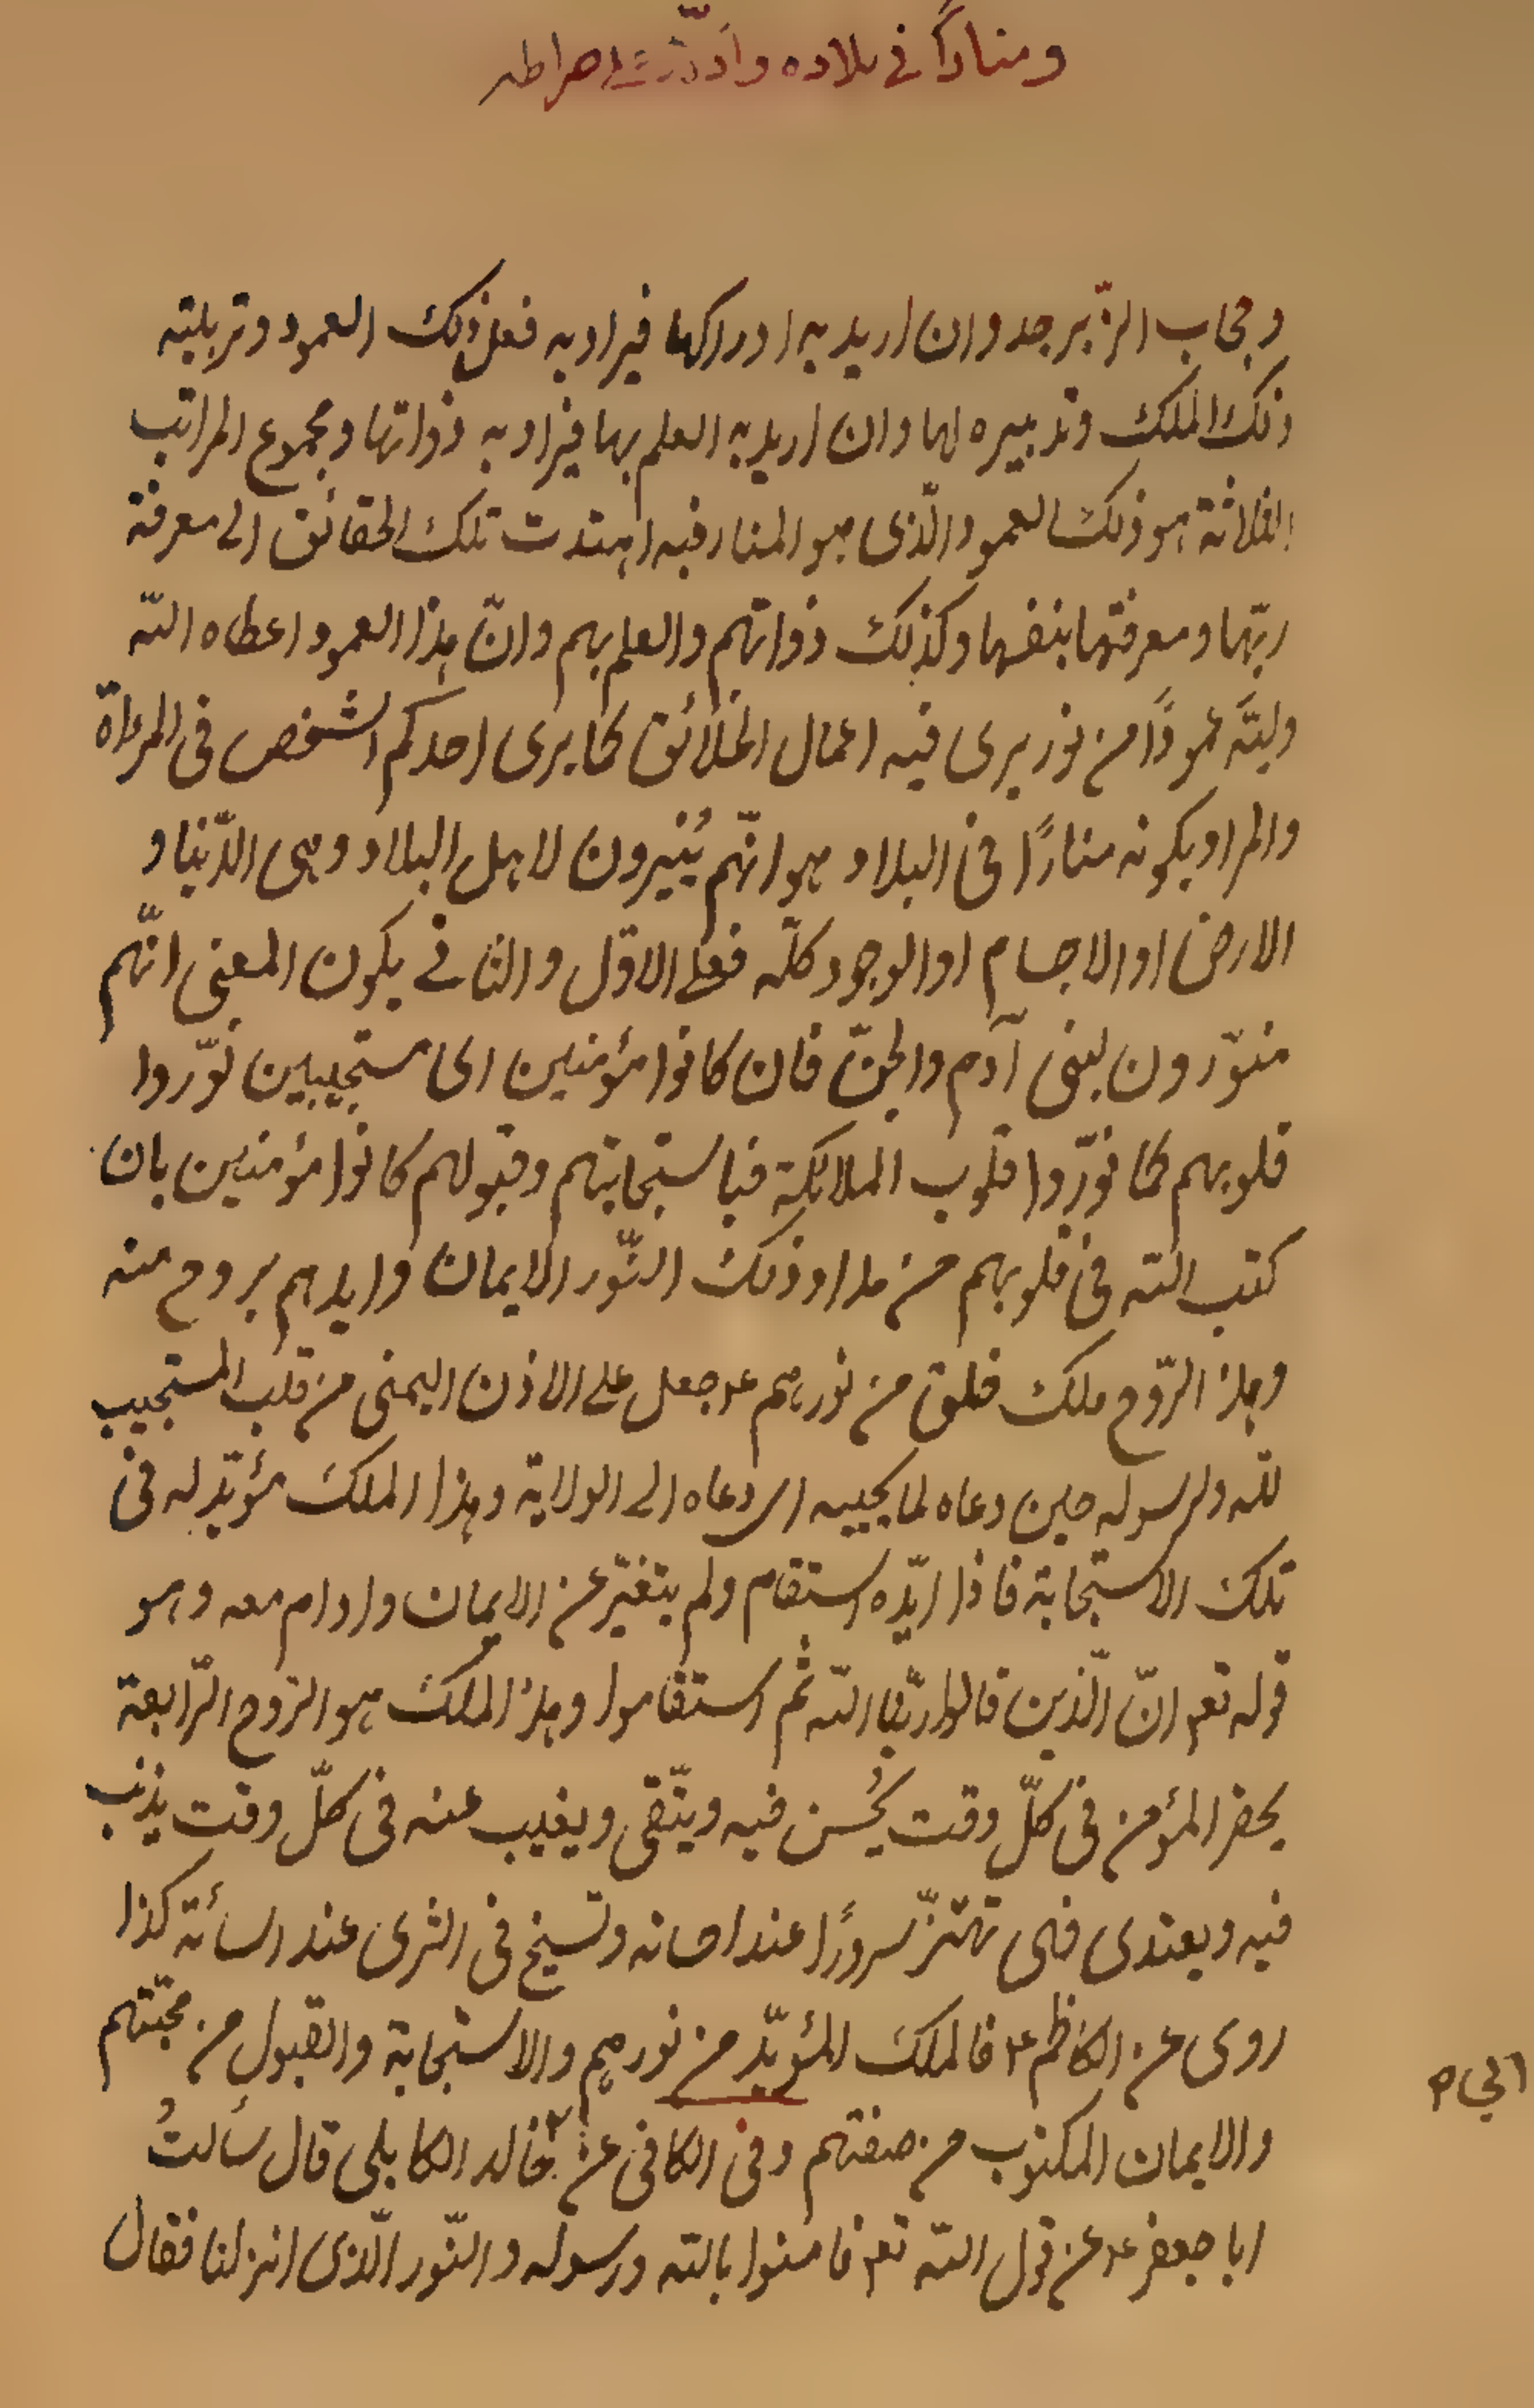 ومناراً في بلاده وادلّاء على صراطه
وحجاب الزّبرجد وان اريد به ادراكها فيراد به فعل ذلك العمود وتربيته
ذلك الملك وتدبيره لها وان اريد به العلم بها فيراد به ذواتها ومجموع المراتب
الثلاثة هو ذلك العمود الّذى هو المنار فبه اهتدت تلك الحقائق الى معرفة
ربّها ومعرفتها بنفسها وكذلك ذواتهم والعلم بهم وانّ هذا العمود اعطاه اللّه
وليّه عموداً من نور يرى فيه اعمال الخلائق كما يرى احدكم الشخص فى المرءاة
والمراد بكونه مناراً فى البلاد هو انّهم يُنيرون لاهل البلاد وهى الدّنيا و
الارض او الاجسام او الوجود كلّه فعلى الاوّل والثانى يكون المعنى انّهم
منوّرون لبنى آدم والجنّ فان كانوا مؤمنين اى مستجيبين نوّروا
قلوبهم كما نوّروا قلوب الملائكة فباستجابتهم وقبولهم كانوا مؤمنين بان
كتب اللّه فى قلوبهم من مداد ذلك النّور الايمان وايدهم بروح منه
وهذا الرّوح ملك خلق من نورهم ع جعل على الاذن اليمنى من قلب المستجيب
للّه ولرسوله حين دعاه لما يحييه اى دعاه الى الولاية وهذا الملك مؤيّد له فى
تلك الاستجابة فاذا ايّده استقام ولم يتغيّر عن الايمان وادام معه وهو
قوله تع انّ الّذين قالوا ربّنا اللّه ثم استقاموا وهذا الملك هو الرّوح الرّابعة
يحضر المؤمن فى كلّ وقت يُحسن فيه ويتّقى ويغيب عنه فى كلّ وقت يذنب
فيه ويعتدى فهى تهتزّ سروراً عند احسانه وتسيخ فى الثرى عند اسائة كذا
روى عن الكاظم ع فالملك المؤيّد من نورهم والاستجابة والقبول من محبّتهم
والايمان المكتوب من صفتهم وفى الكافى عن خالد الكابلى قال سألتُ
ابى م
ابا جعفر ع عن قول اللّه تع فامنوا باللّه ورسوله والنّور الّذى انزلنا فقال